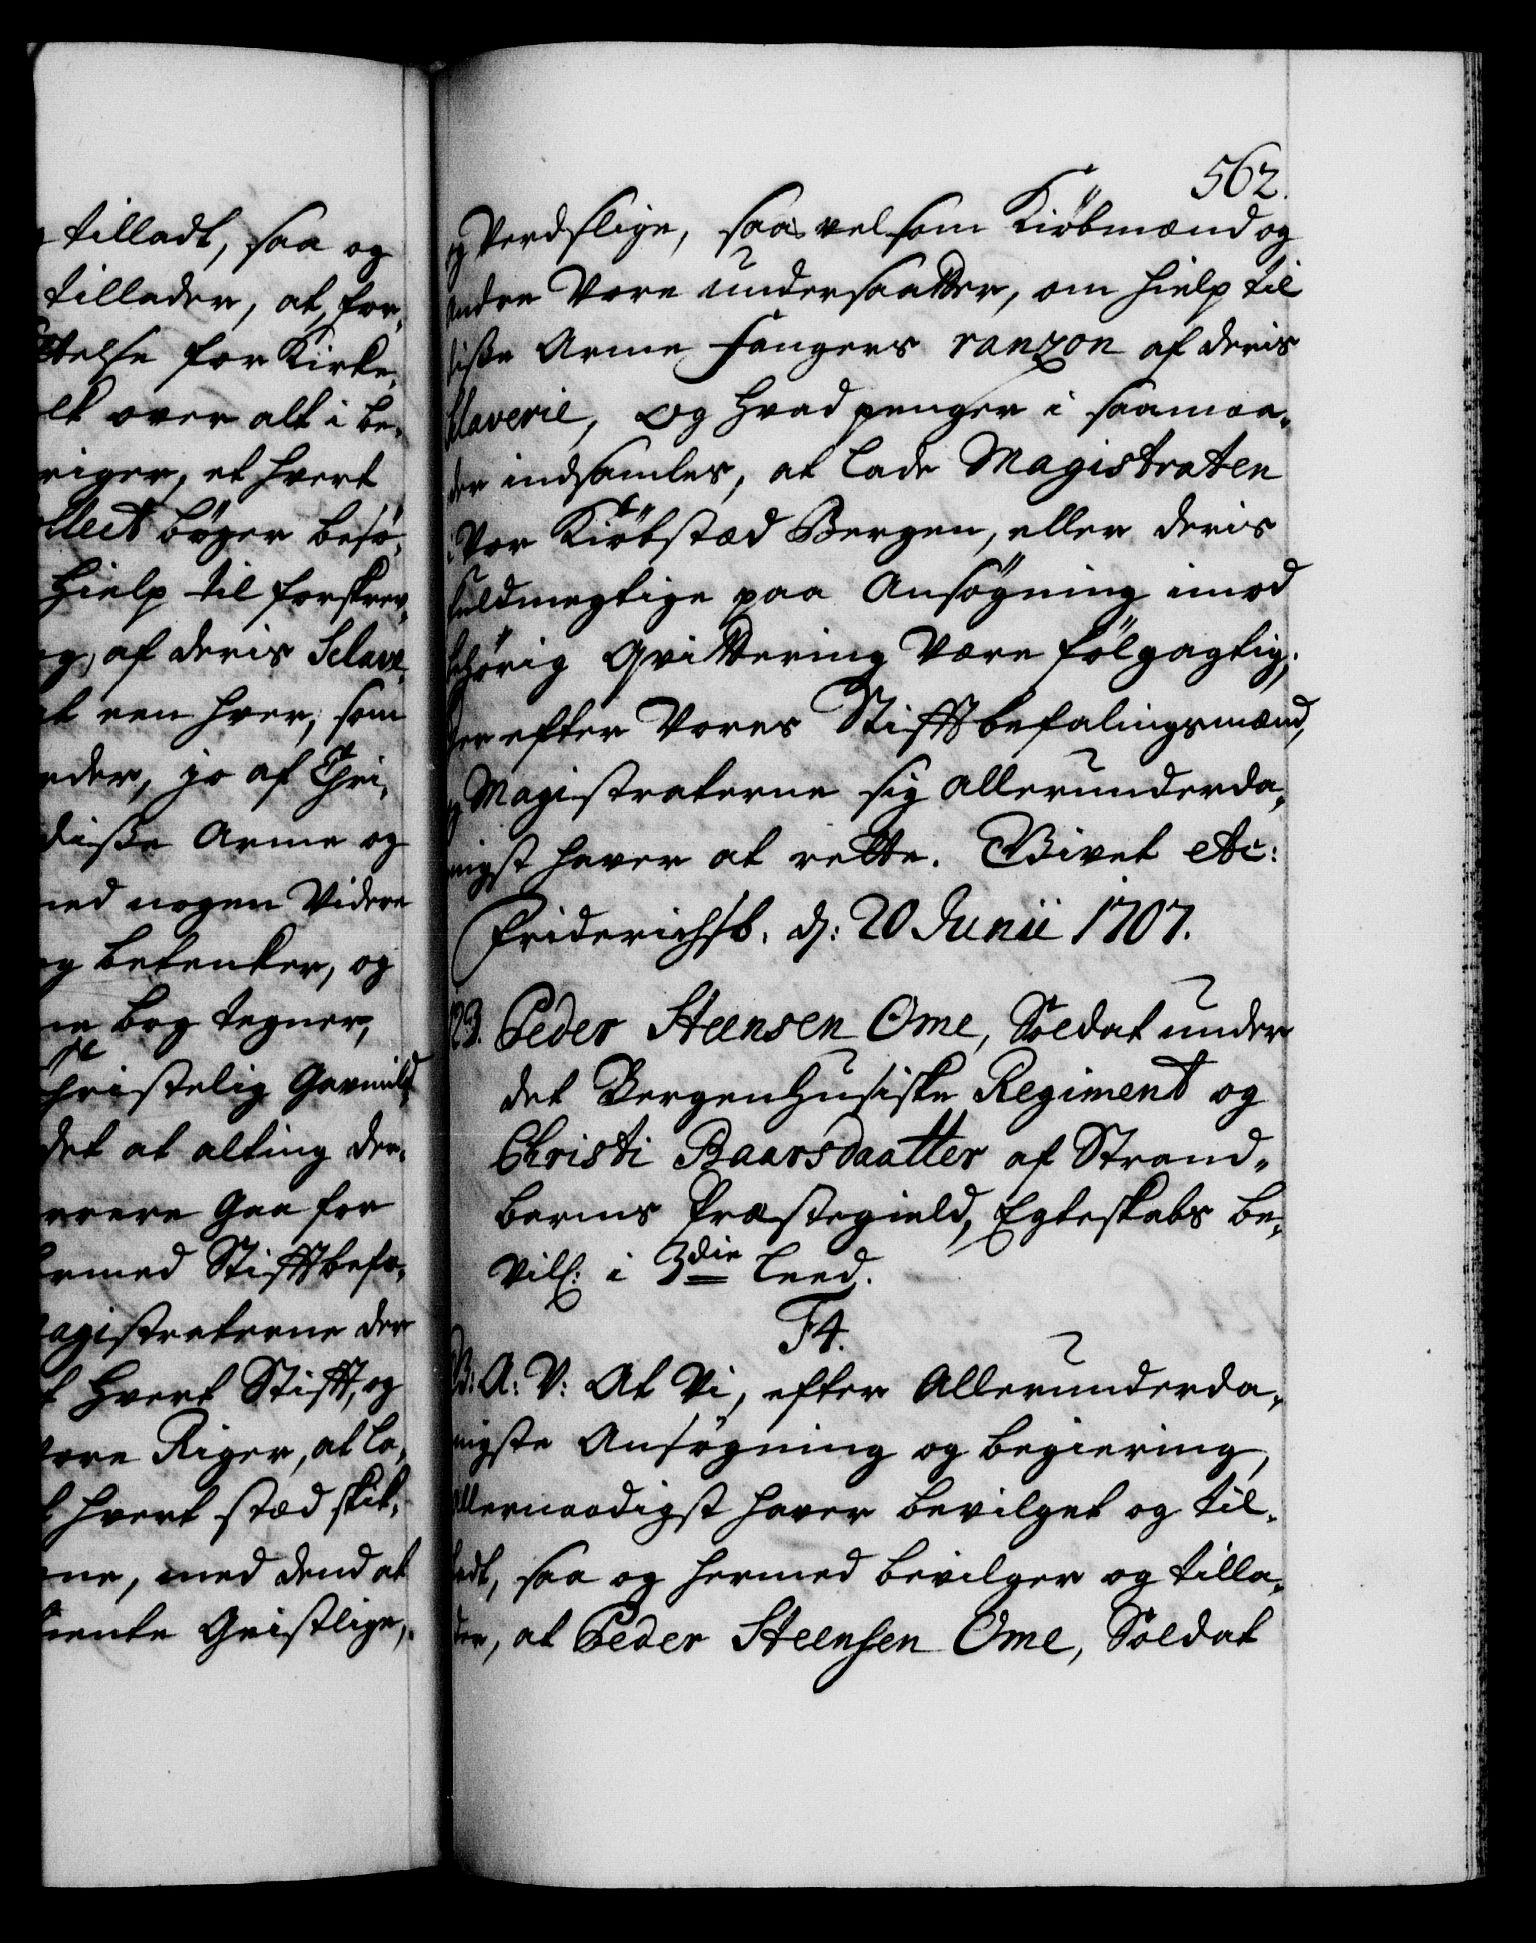 562.
tilladt, saa og
tillader, at for,
telse for Kirke,
et over alt i be,
riger, et hvert
llect bøger besø,
Hielp til forskrev,
og, af deris Sclave,
at een hver, som
eder, jo af Chri,
disse Arme og
ned nogen Videre
og betenker, og
ne bog tegner,
Christelig Gavmild,
det at alting der,
errere Gaa for
ermed Stifftbefa,
agistraterne der
t hvert Stifft, og
vore Riger, at la,
t hvert stæd skik,
ne, med dend at
mente Geistlige,
og Verdslige, saa vel som Kiøbmænd og
andre Vore undersaatter, om hielp til
disse Arme Fangers ranzon af deris
Slaverie, og hvad penger i saamaa,
der indsamles, at lade Magistraten
i Vor Kiøbstæd Bergen, eller deris
fuldmegtige paa Ansøgning imod
behørig Qvittering Være følgagtig;
Her efter Vores Stifftbefalingsmænd,
og Magistraterne sig allerunderda,
nigst haver at rette. Givet etc:
Friderichsb. d: 20 Junii 1707.
123. Peder Steensen Ome, Soldat under
det Bergenhusiske Regiment og
Christi Baarsdaatter af Strand,
barms Præstegield, Egteskabs be,
vill: i 3die Leed.
F4.
G: A: V: At Vi, efter Allerunderda,
nigste Ansøgning og begiering,
Allernaadigst haver bevilget og til,
ladt, saa og hermed bevilger og tilla,
der, at Peder Steensen Ome, Soldat